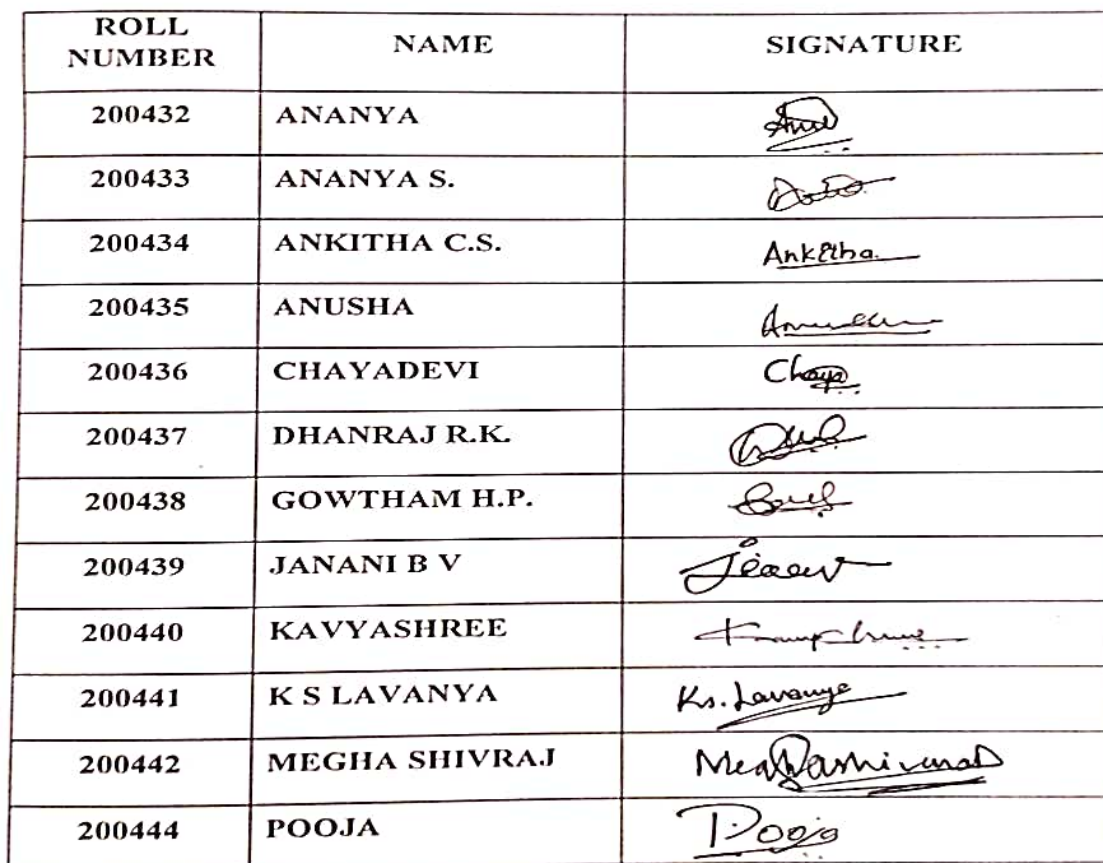 ROLL NUMBER NAME SIGNATURE
200432 ANANYA
200433 ANANYA S.
200434 ANKITHA C.S. Ankitha.
200435 ANUSHA
200436 CHAYADEVI Chaya
200437 DHANRAJ R.K.
200438 GOWTHAM H.P.
200439 JANANI B V
200440 KAVYASHREE
200441 K S LAVANYA Ks. Lavanya
200442 MEGHA SHIVRAJ
200444 POOJA Pooja